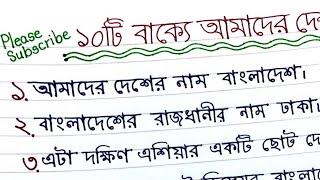 Please
Subscribe
১০টি বাক্যে আমাদের
১. আমাদের দেশের নাম বাংলাদেশ।
২. বাংলাদেশের রাজধানীর নাম ঢাকা।
৩. এটা দক্ষিণ এশিয়ার একটি ছোট